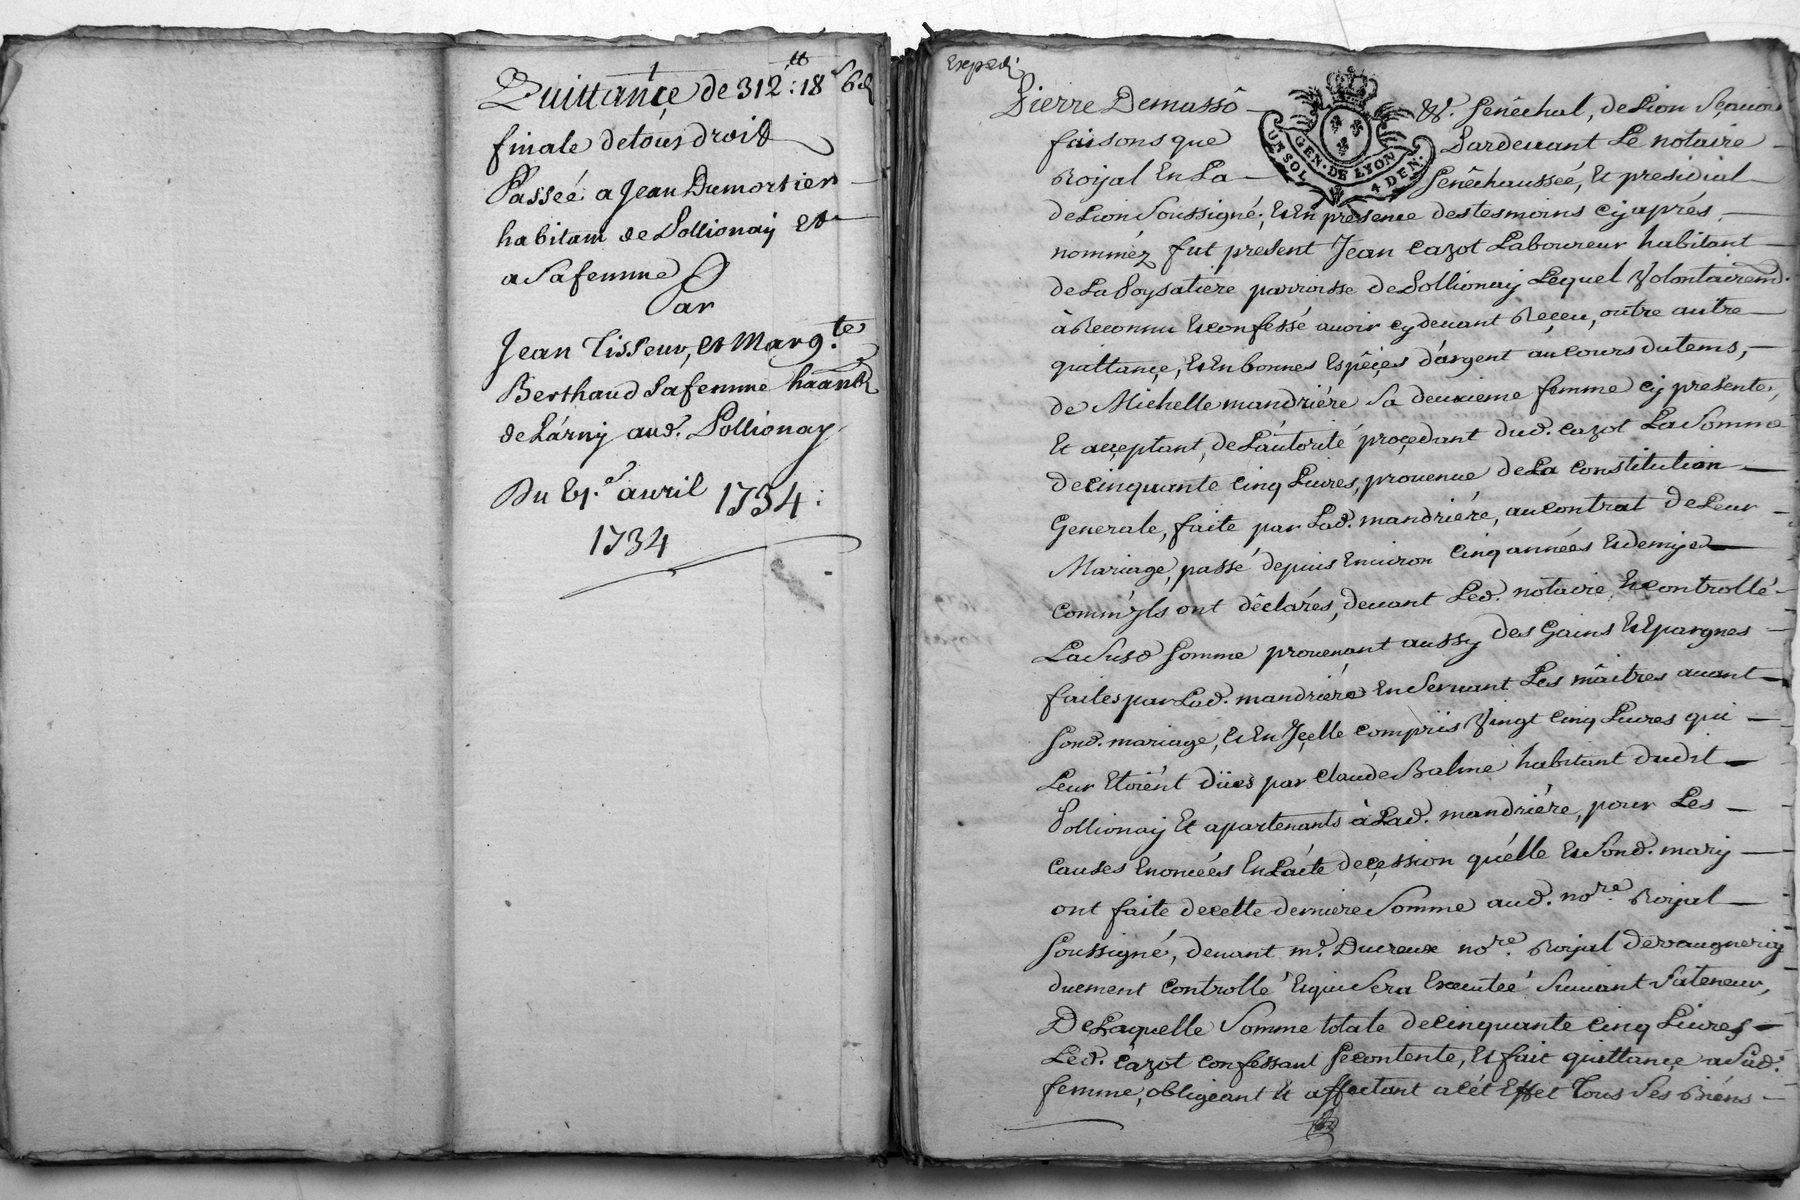 Quittançe de 312 ₶ : 18 s 6 d
finale detous droits
Passeé a Jean Dumortier
habitant de Pollionaÿ et
a Safemme
Par
Jean Tisseur, et Marg.te
Berthaud Safemme
de Lárnÿ aud. Pollionay
Du 21.e avril 1734 :
1734
Expedi
Pierre Demassô &. Senêchal, de Lion Sçavoir
faisons que Pardevant Le notaire
Roÿal En La Senêchausseé, Et presidial
de Lion Soussigné, Et En presence des tesmoins Cÿ aprés,
nomméz fut present Jean Cazot Laboureur habitant
de La Poysatiere parroisse de Pollionaÿ Lequel Volontairemt.
à Reconnu Et confessé avoir cy devant Reçeu, outre autre
quittançe, Et En bonnes Espêçes d'argent au Cours du tems,
de Michelle mandriére Sa deuxieme femme cÿ presente,
Et acçeptant, de L'autorité proçedant dud. Cazot La Somme
de Cinquante Cinq Livres, provenue de La Constitution
Generale, faite par Lad. mandriére, au Contrat de Leur
Mariage, passé depuis Environ Cinq années Et demÿe
Comm'ÿls ont déclarés, devant Led. notaire, Et Controllé
La Susd Somme provenant aussy des Gains Et Epargnes
faites par Lad. mandriére En Servant Les maîtres avant
Sond. mariage, Et En Jçelle Comprïs Vingt Cinq Livres qui
Leur Etoiént Düës par Claude Balmé habitant dudit
Pollionaÿ Et apartenants à Lad. mandriére, pour Les
Causes Enonceés En L'acte de Çession qu'élle Et Sond. marÿ
ont faite de Cette derniere Somme aud. no.re Roÿal
Soussigné, devant m.e Ducreux no.re Roÿal de Vaugnerÿ
duement Controllé Et qui Sera Executée Suivant Sa teneur,
De Laquelle Somme totale de Cinquante Cinq Livres
Led. Cazot Confessant Se Contente, Et fait quittançe a Sad.
femme, obligéant Et affectant a Cét Effet tous Ses Biéns
GEN. DE LYON
UN SOL 4 DEN.